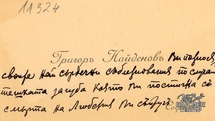 11324
Григоръ Найденовъ Ви поднася
своите най сърдечни съболезнования по случай
тежката загуба която Ви постигна съ
смърта на Любезния Ви съпруг